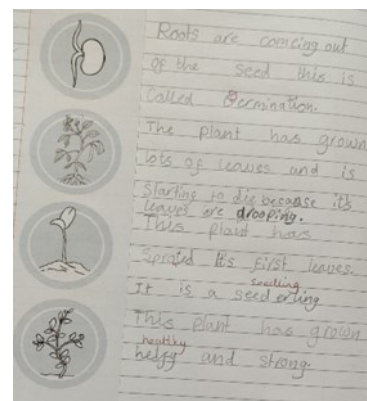 Roots are comeing out
of the seed this is
Called Germination.
The plant has grown
lots of leaves and is
Starting to die because it's
leaves are drooping.
This plant has
Sprouted It's first leaves.
seedling
It is a seed erling
This plant has grown
healthy
helfy and strong.